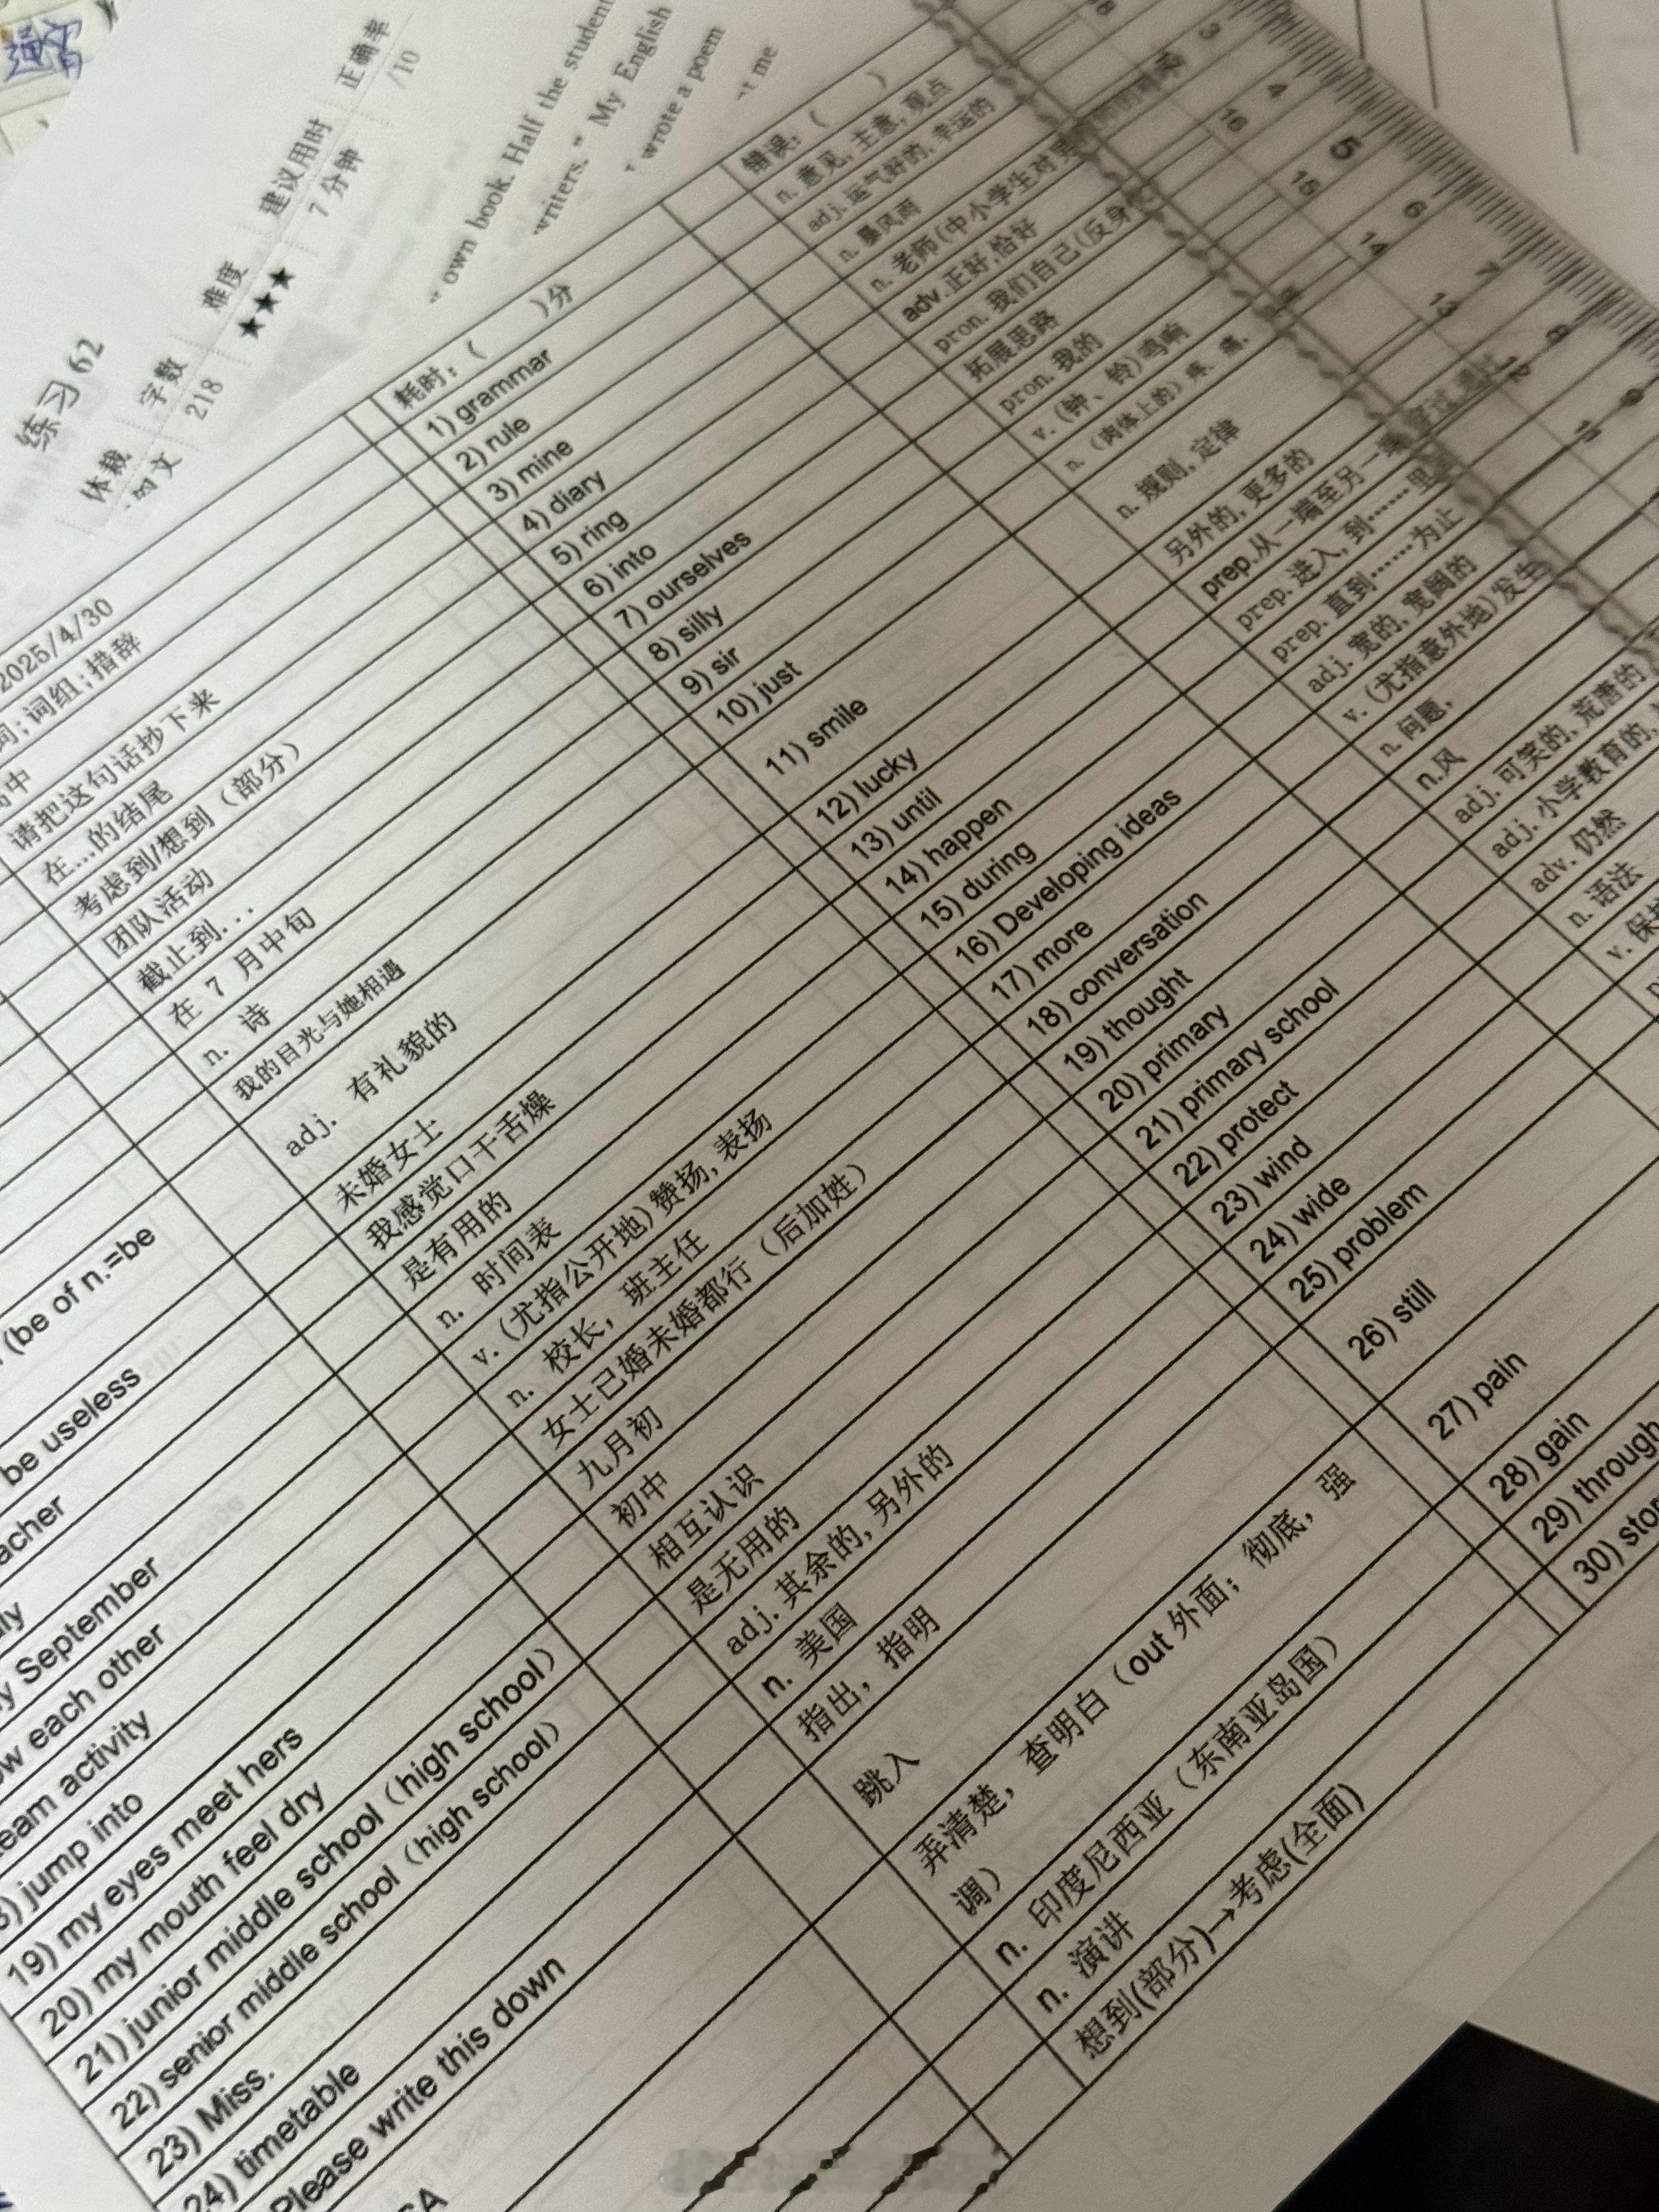 通宵
练习 62
体裁 字数 难度 建议用时 正确率
218 ★★★ 7 分钟 /10
own book. Half the student
writers." My English
wrote a poem
me
2025/4/30
词组;措辞
请把这句话抄下来
在...的结尾
考虑到/想到（部分）
团队活动
截止到...
在 7 月中旬
n. 诗
我的目光与她相遇
adj. 有礼貌的
未婚女士
我感觉口干舌燥
是有用的
n. 时间表
v. (尤指公开地)赞扬,表扬
n. 校长，班主任
女士已婚未婚都行（后加姓）
九月初
初中
相互认识
是无用的
adj. 其余的,另外的
n. 美国
指出，指明
跳入
弄清楚，查明白（out 外面；彻底，强
调）
n. 印度尼西亚（东南亚岛国）
n. 演讲
想到(部分)→考虑(全面)
(be of n.=be
be useless
September
each other
team activity
jump into
19) my eyes meet hers
20) my mouth feel dry
21) junior middle school（high school）
22) senior middle school（high school）
23) Miss.
24) timetable
Please write this down
耗时：（ ）分
1) grammar
2) rule
3) mine
4) diary
5) ring
6) into
7) ourselves
8) silly
9) sir
10) just
11) smile
12) lucky
13) until
14) happen
15) during
16) Developing ideas
17) more
18) conversation
19) thought
20) primary
21) primary school
22) protect
23) wind
24) wide
25) problem
26) still
27) pain
28) gain
29) through
错误：（ ）
n. 意见,主意,观点
adj. 运气好的,幸运的
n. 暴风雨
n. 老师(中小学生对男
adv. 正好,恰好
pron. 我们自己(反身
拓展思路
pron. 我的
v. (钟、铃)鸣响
n. （肉体上的）疼、痛,
n. 规则,定律
另外的,更多的
prep.从一端至另一端
prep. 进入,到……里
prep. 直到……为止
adj. 宽的,宽阔的
v. (尤指意外地)发生
n. 问题,
n.风
adj. 可笑的,荒唐的
adj. 小学教育的,
adv. 仍然
n. 语法
3 4 5 6 7 8 9
16 15 14 13 12 11